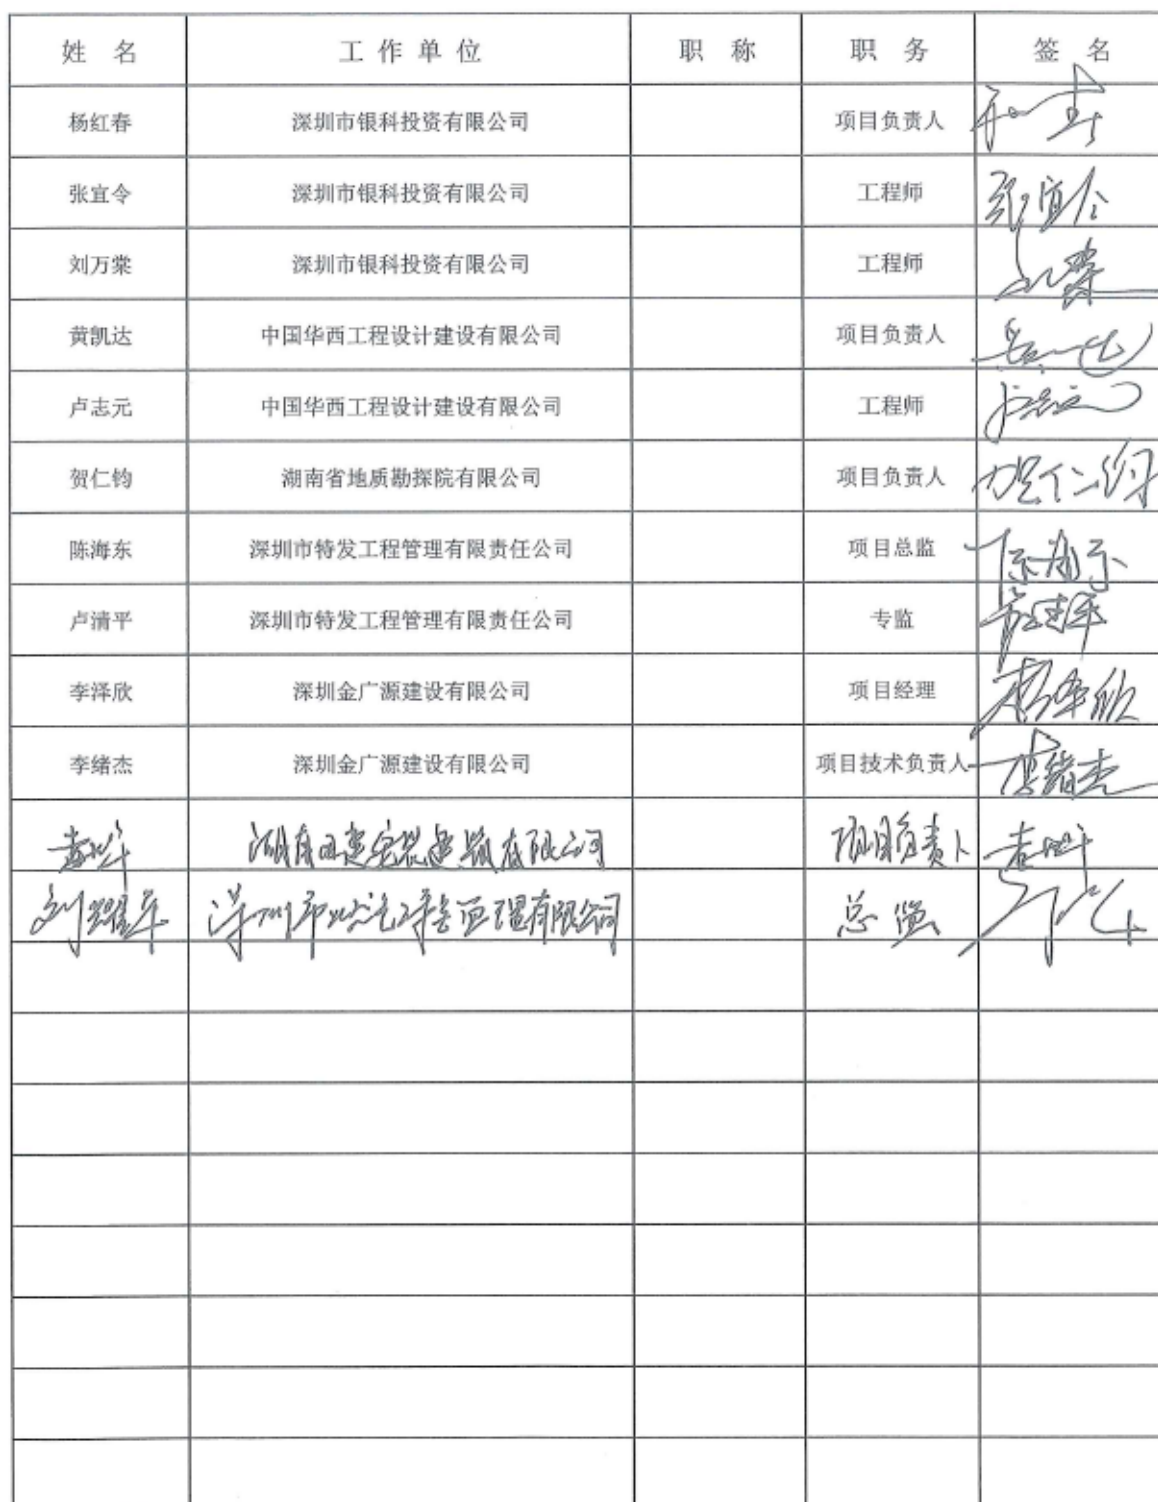 姓 名 工 作 单 位 职 称 职 务 签 名
杨红春 深圳市银科投资有限公司 项目负责人
张宜令 深圳市银科投资有限公司 工程师 张宜令
刘万棠 深圳市银科投资有限公司 工程师
黄凯达 中国华西工程设计建设有限公司 项目负责人
卢志元 中国华西工程设计建设有限公司 工程师 卢志元
贺仁钧 湖南省地质勘探院有限公司 项目负责人 贺仁钧
陈海东 深圳市特发工程管理有限责任公司 项目总监 陈海东
卢清平 深圳市特发工程管理有限责任公司 专监
李泽欣 深圳金广源建设有限公司 项目经理 李泽欣
李绪杰 深圳金广源建设有限公司 项目技术负责人 李绪杰
有限公司 项目负责人
刘耀平 管理有限公司 总监